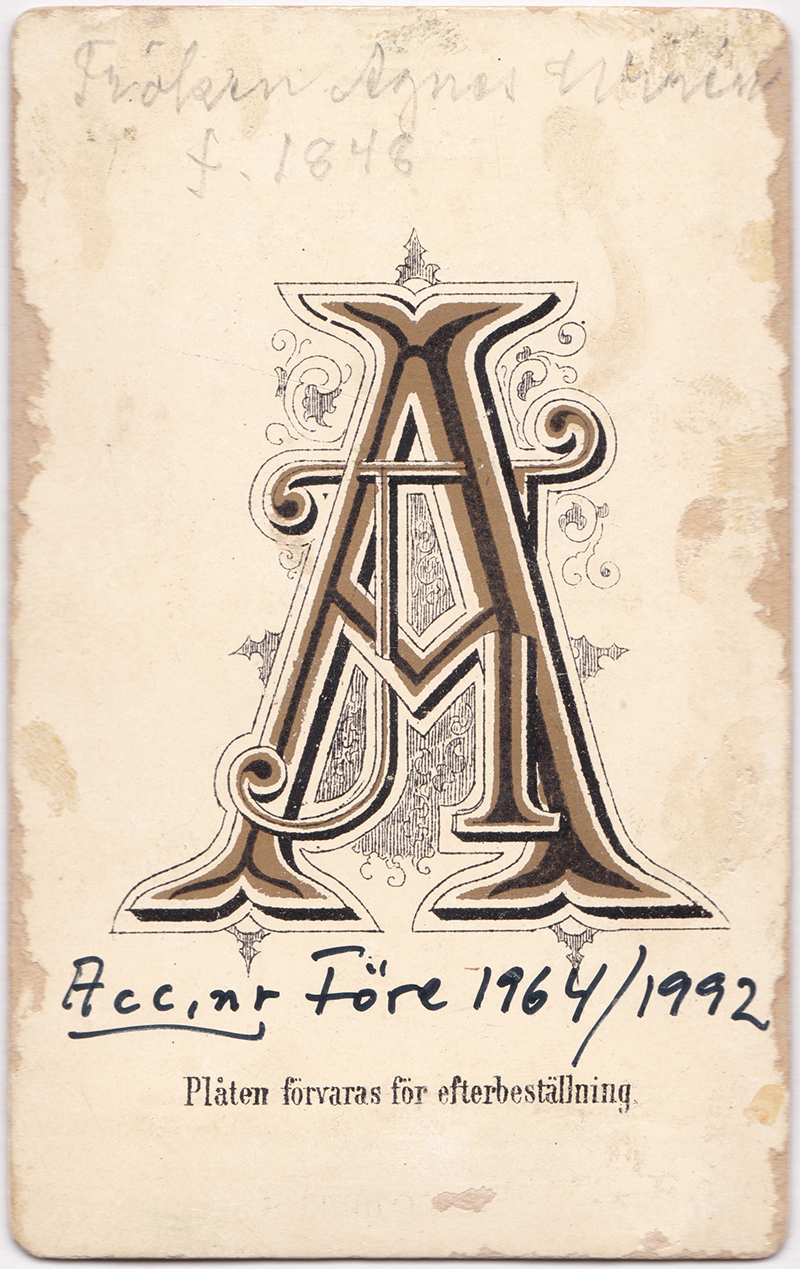 Fröken Agnes
f. 1848
Acc,nr Före 1964/1992
Plåten förvaras för efterbeställning.